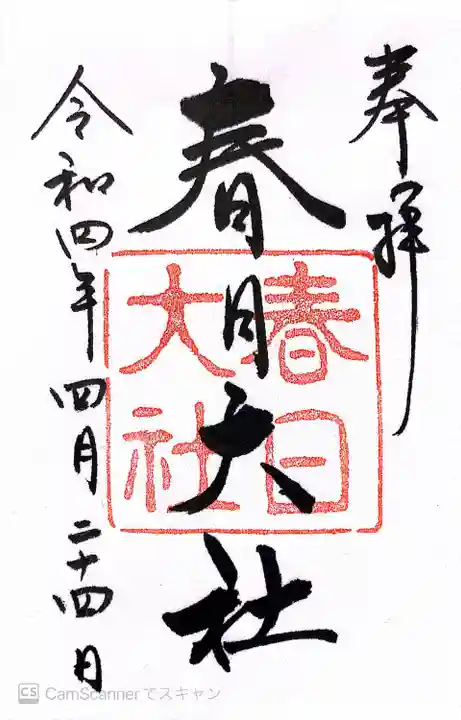 奉拝
春日大社
春日
大社
令和四年四月二十四日
CS CamScannerでスキャン